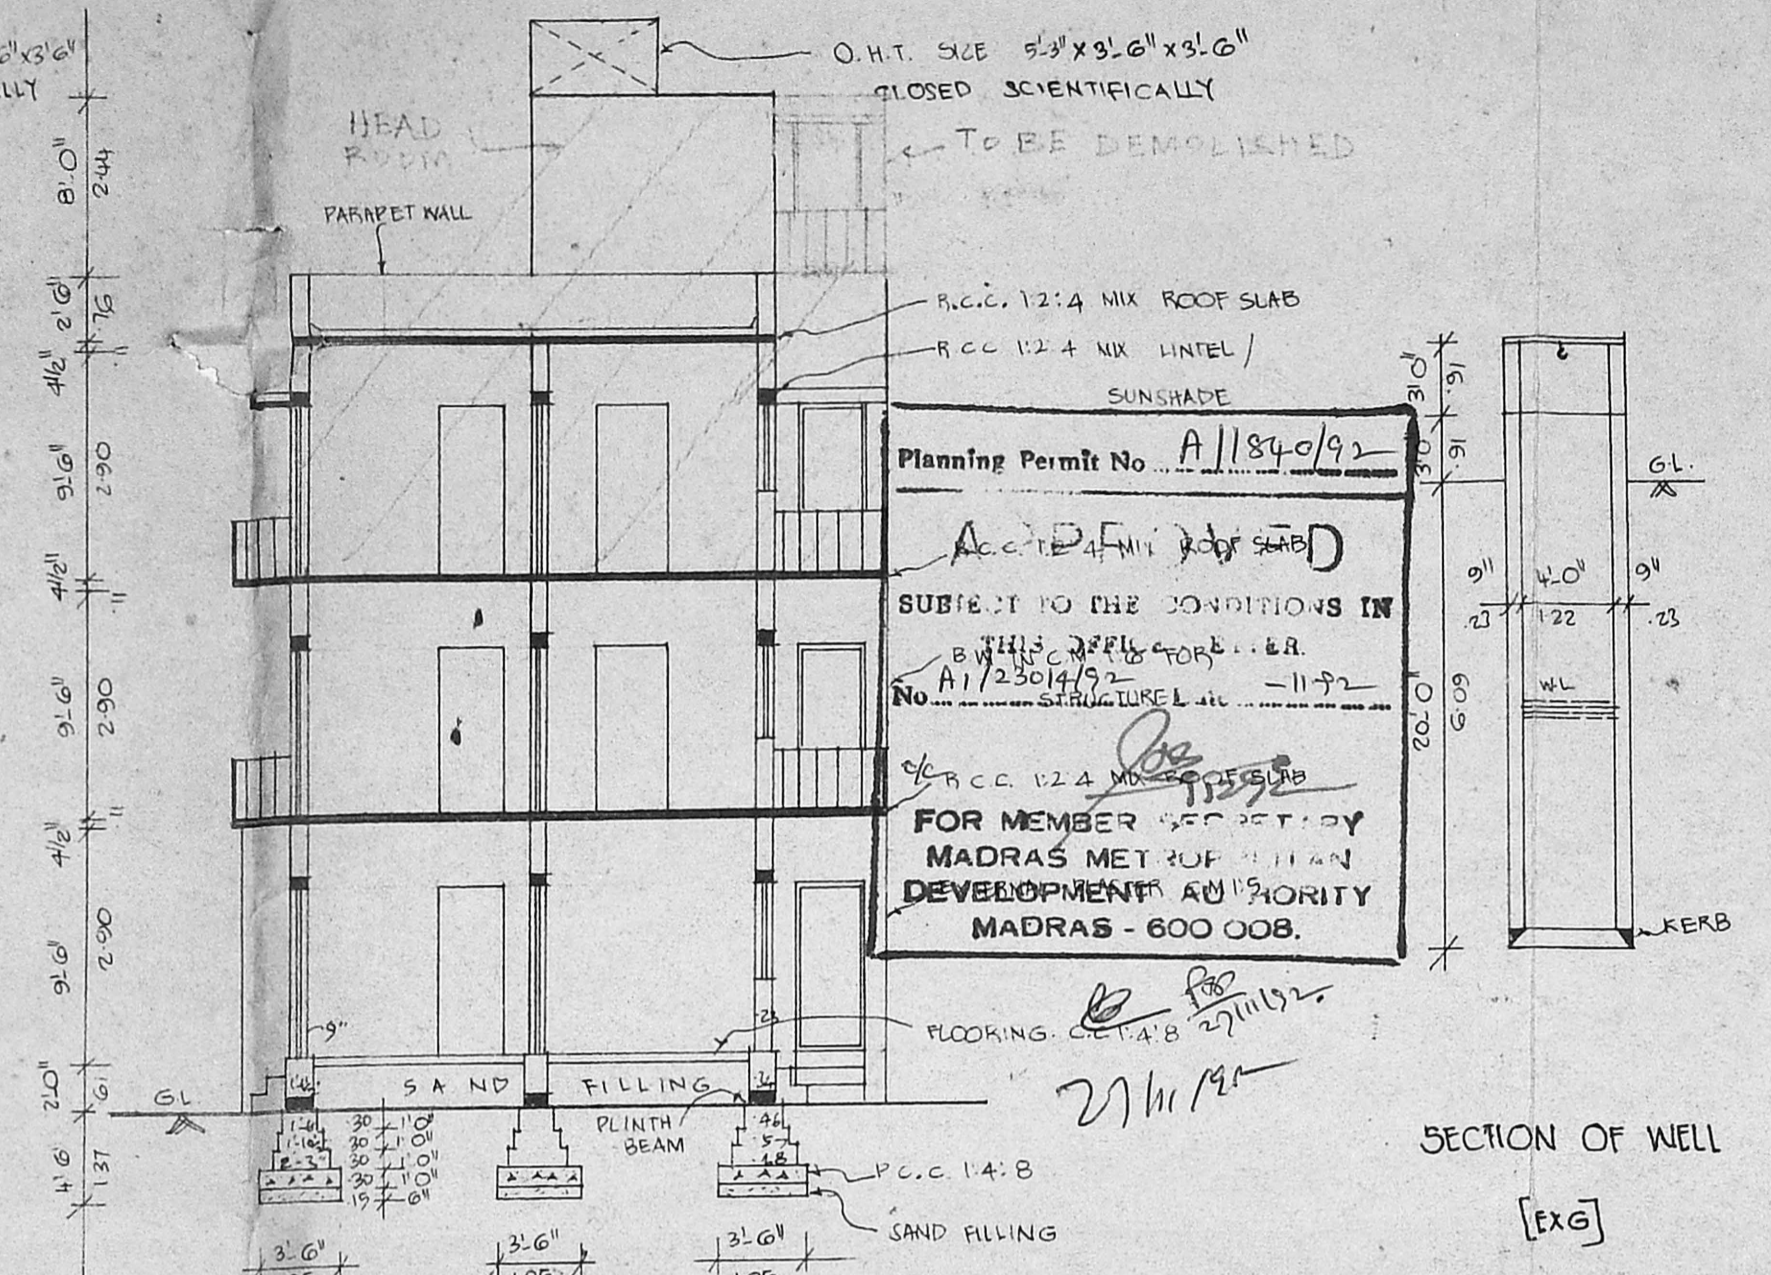 6"x3'6"
LLY
O.H.T. SIZE 5'-3"X3'-6"X3'-6"
CLOSED SCIENTIFICALLY
HEAD
ROOM
TO BE DEMOLISHED
PARAPET WALL
8'.0"
2.44
2'6"
.76
4½"
9'-6"
2.90
4½"
9'-6"
2.90
4½"
9'-6"
2.90
2'.0"
.61
4'6"
1.37
R.C.C. 1:2:4 MIX ROOF SLAB
R.C.C 1:2:4 MIX LINTEL /
SUNSHADE
Planning Permit No A/1840/92
APPROVED
R.C.C. 1:2:4 MIX ROOF SLAB
SUBJECT TO THE CONDITIONS IN
THIS OFFICE LETTER.
B.W IN C.M 1:8 FOR
STRUCTURE
No A1/23014/92 -11-92
R.C.C. 1:2:4 MIX ROOF SLAB
FOR MEMBER SECRETARY
MADRAS METROPOLITAN
DEVELOPMENT AUTHORITY
PLASTER C.M 1:5
MADRAS - 600 008.
27/11/92.
FLOORING. C.C 1:4:8
27/11/92
9"
.23
G.L
SAND FILLING
PLINTH
BEAM
.30 1'0"
.30 1'0"
.30 1'0"
.30 1'0"
.15 6"
.46
P.C.C. 1:4:8
SAND FILLING
3'-6"
3'-6"
3'-6"
3'.0"
.91
3'.0
.91
G.L.
9" 4'-0" 9"
.23 1.22 .23
W.L
20'.0"
6.09
KERB
SECTION OF WELL
[EXG]